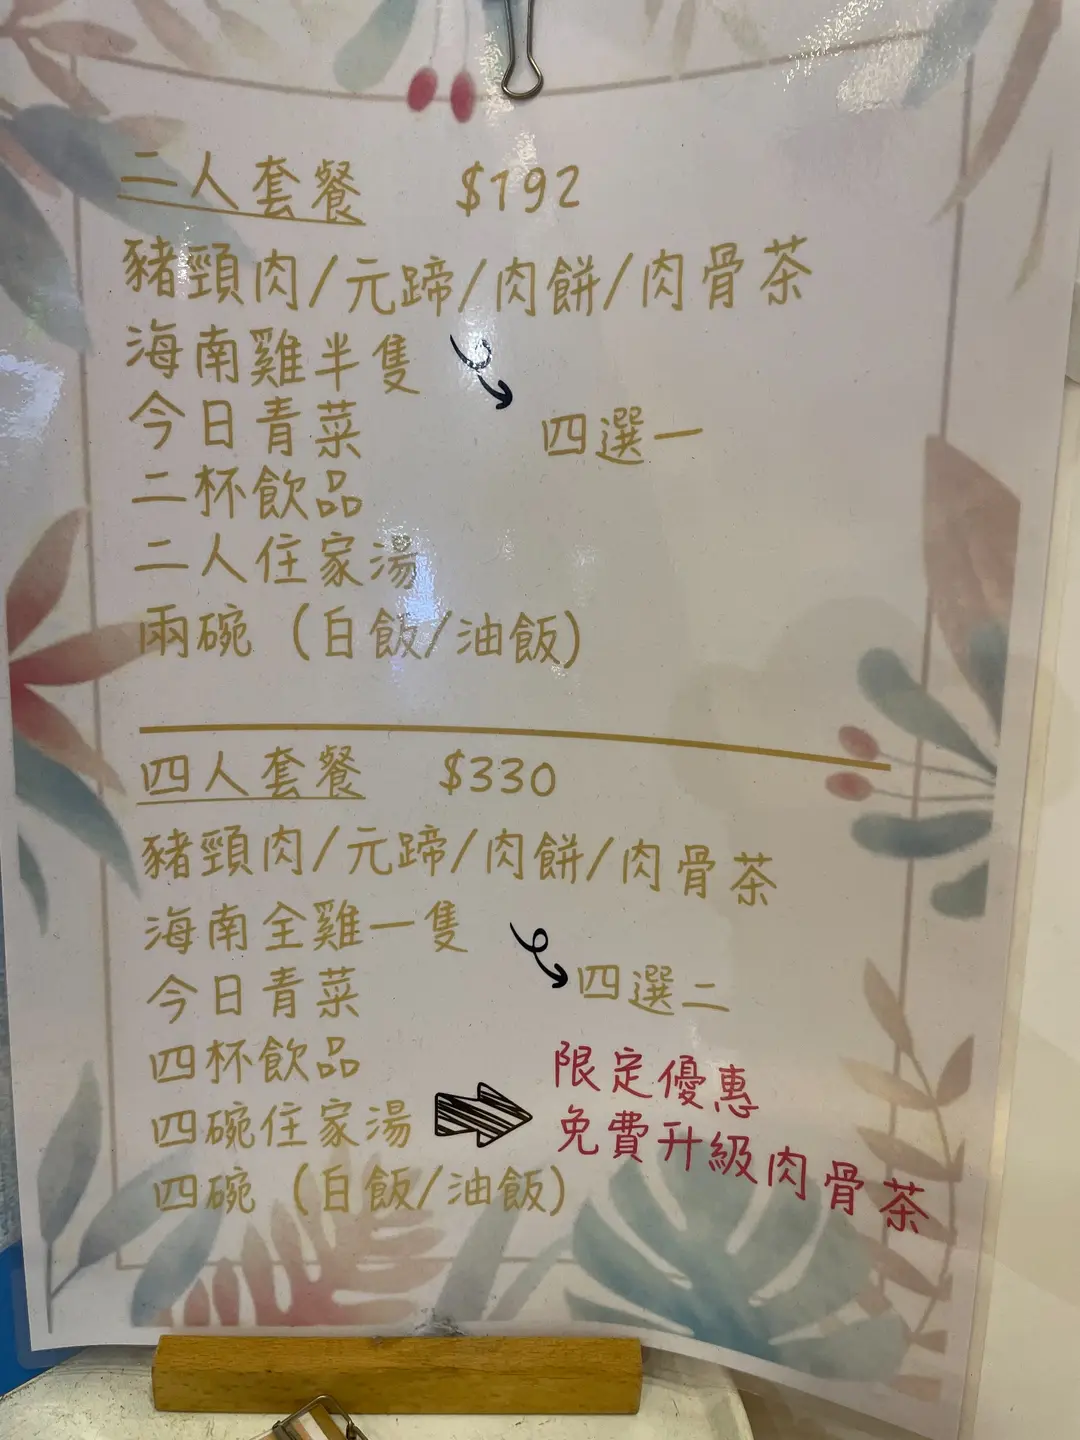 二人套餐 $192
豬頸肉/元蹄/肉餅/肉骨茶
海南雞半隻
四選一
今日青菜
二杯飲品
二人住家湯
兩碗（白飯/油飯）
四人套餐 $330
豬頸肉/元蹄/肉餅/肉骨茶
海南全雞一隻
四選二
今日青菜
四杯飲品
四碗住家湯
限定優惠
免費升級肉骨茶
四碗（白飯/油飯）